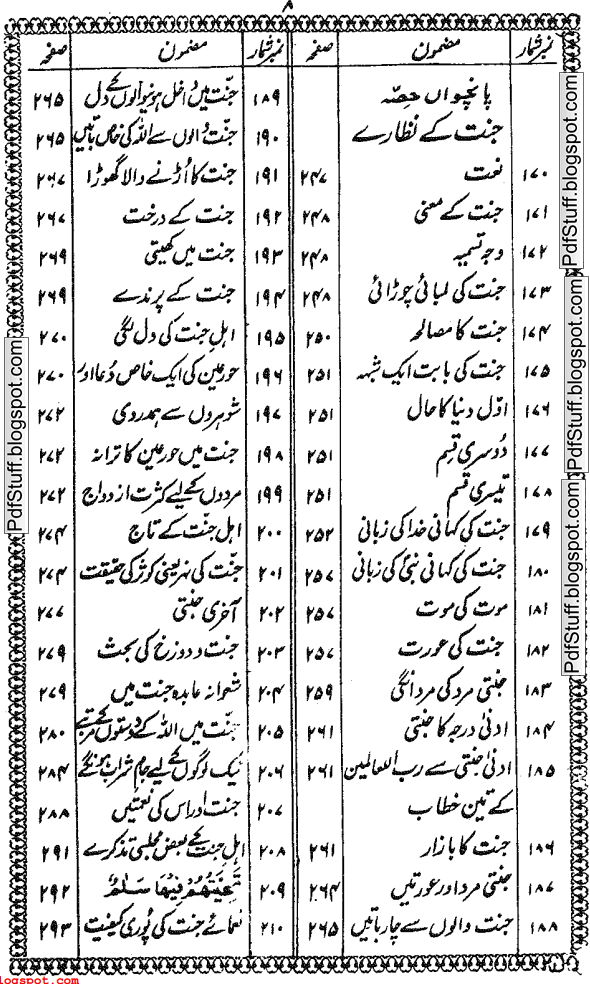 ۸
نمبر شمار مضمون صفحہ
پانچواں حصّہ
جنت کے نظارے
۱۷۰ نعت ۲۴۷
۱۷۱ جنت کے معنی ۲۴۸
۱۷۲ وجہ تسمیہ ۲۴۸
۱۷۳ جنت کی لمبائی چوڑائی ۲۴۸
۱۷۴ جنت کا مصالحہ ۲۵۰
۱۷۵ جنت کی بابت ایک شبہ ۲۵۱
۱۷۶ اوّل دنیا کا حال ۲۵۱
۱۷۷ دُوسری قسم ۲۵۱
۱۷۸ تیسری قسم ۲۵۱
۱۷۹ جنت کی کہانی خدا کی زبانی ۲۵۲
۱۸۰ جنت کی کہانی نبیؐ کی زبانی ۲۵۷
۱۸۱ موت کی موت ۲۵۷
۱۸۲ جنت کی عورت ۲۵۷
۱۸۳ جنتی مرد کی مردانگی ۲۵۹
۱۸۴ ادنیٰ درجہ کا جنتی ۲۶۱
۱۸۵ ادنیٰ جنتی سے رب العالمین ۲۶۱
کے تین خطاب
۱۸۶ جنت کا بازار ۲۶۱
۱۸۷ جنتی مرد اور عورتیں ۲۶۴
۱۸۸ جنت والوں سے چار باتیں ۲۶۵
نمبر شمار مضمون صفحہ
۱۸۹ جنّت میں داخل ہونیوالوں کے دل ۲۶۵
۱۹۰ جنّت والوں سے اللہ کی خاص باتیں ۲۶۵
۱۹۱ جنت کا اُڑنے والا گھوڑا ۲۶۷
۱۹۲ جنت کے درخت ۲۶۷
۱۹۳ جنت میں کھیتی ۲۶۹
۱۹۴ جنت کے پرندے ۲۶۹
۱۹۵ اہلِ جنت کی دل لگی ۲۷۰
۱۹۶ حورعین کی ایک خاص دُعا اور ۲۷۰
۱۹۷ شوہردوں سے ہمدردی ۲۷۲
۱۹۸ جنت میں حورعین کا ترانہ ۲۷۲
۱۹۹ مردوں کے لیے کثرت ازدواج ۲۷۲
۲۰۰ اہل جنّت کے تاج ۲۷۴
۲۰۱ جنّت کی نہر یعنی کوثر کی حقیقت ۲۷۴
۲۰۲ آخری جنتی ۲۷۷
۲۰۳ جنت و دوزخ کی بحث ۲۷۹
۲۰۴ شعوانہ عابدہ جنت میں ۲۷۹
۲۰۵ جنّت میں اللہ کے دوستوں کے مرتبے ۲۸۰
۲۰۶ نیک لوگوں کے لیے جام شراب ہونگے ۲۸۴
۲۰۷ جنت اور اس کی نعمتیں ۲۸۸
۲۰۸ اہل جنت کے بعض مجلسی تذکرے ۲۹۱
۲۰۹ تَحِيَّتُهُمْ فِيهَا سَلٰمٌ ۲۹۲
۲۱۰ نعمائے جنت کی پُوری کیفیت ۲۹۳
PdfStuff.blogspot.com
PdfStuff.blogspot.com
PdfStuff.blogspot.com
PdfStuff.blogspot.com
blogspot.com